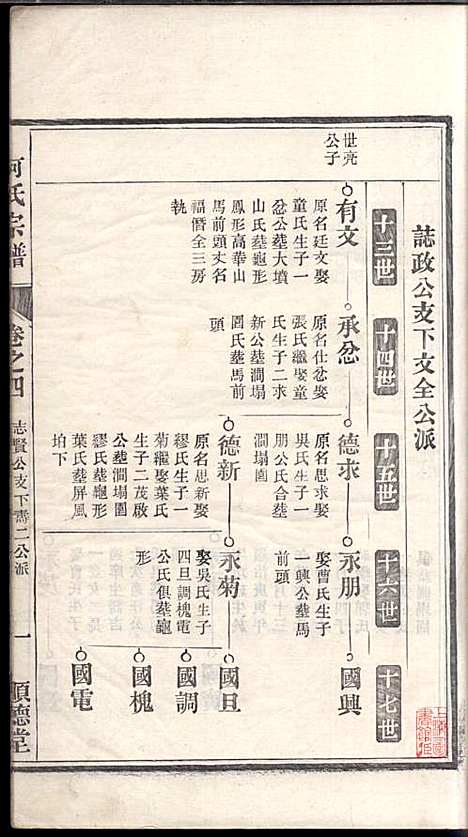 誌政公支下文全公派
十三世
十四世
十五世
十六世
十七世
世亮
公子
有文
原名廷文娶
童氏生子一
忿公墓大墳
山氏墓龜形
鳳形高華山
馬前頭丈名
福僭全三房
執
承忿
原名仕忿娶
張氏繼娶童
氏生子二求
新公墓澗塌
園氏墓馬前
頭
德求
原名思求娶
吳氏生子一
朋公氏合墓
澗塌園
永朋
娶曹氏生子
一興公墓馬
前頭
國興
德新
原名思新娶
繆氏生子一
菊繼娶葉氏
生子二茂啟
公墓澗塌園
繆氏墓龜形
葉氏墓屏風
垍下
永菊
娶吳氏生子
四旦調槐電
公氏俱墓龜
形
國旦
國調
國槐
國電
何氏宗譜
卷之四
志賢公支下喬二公派
一
順德堂